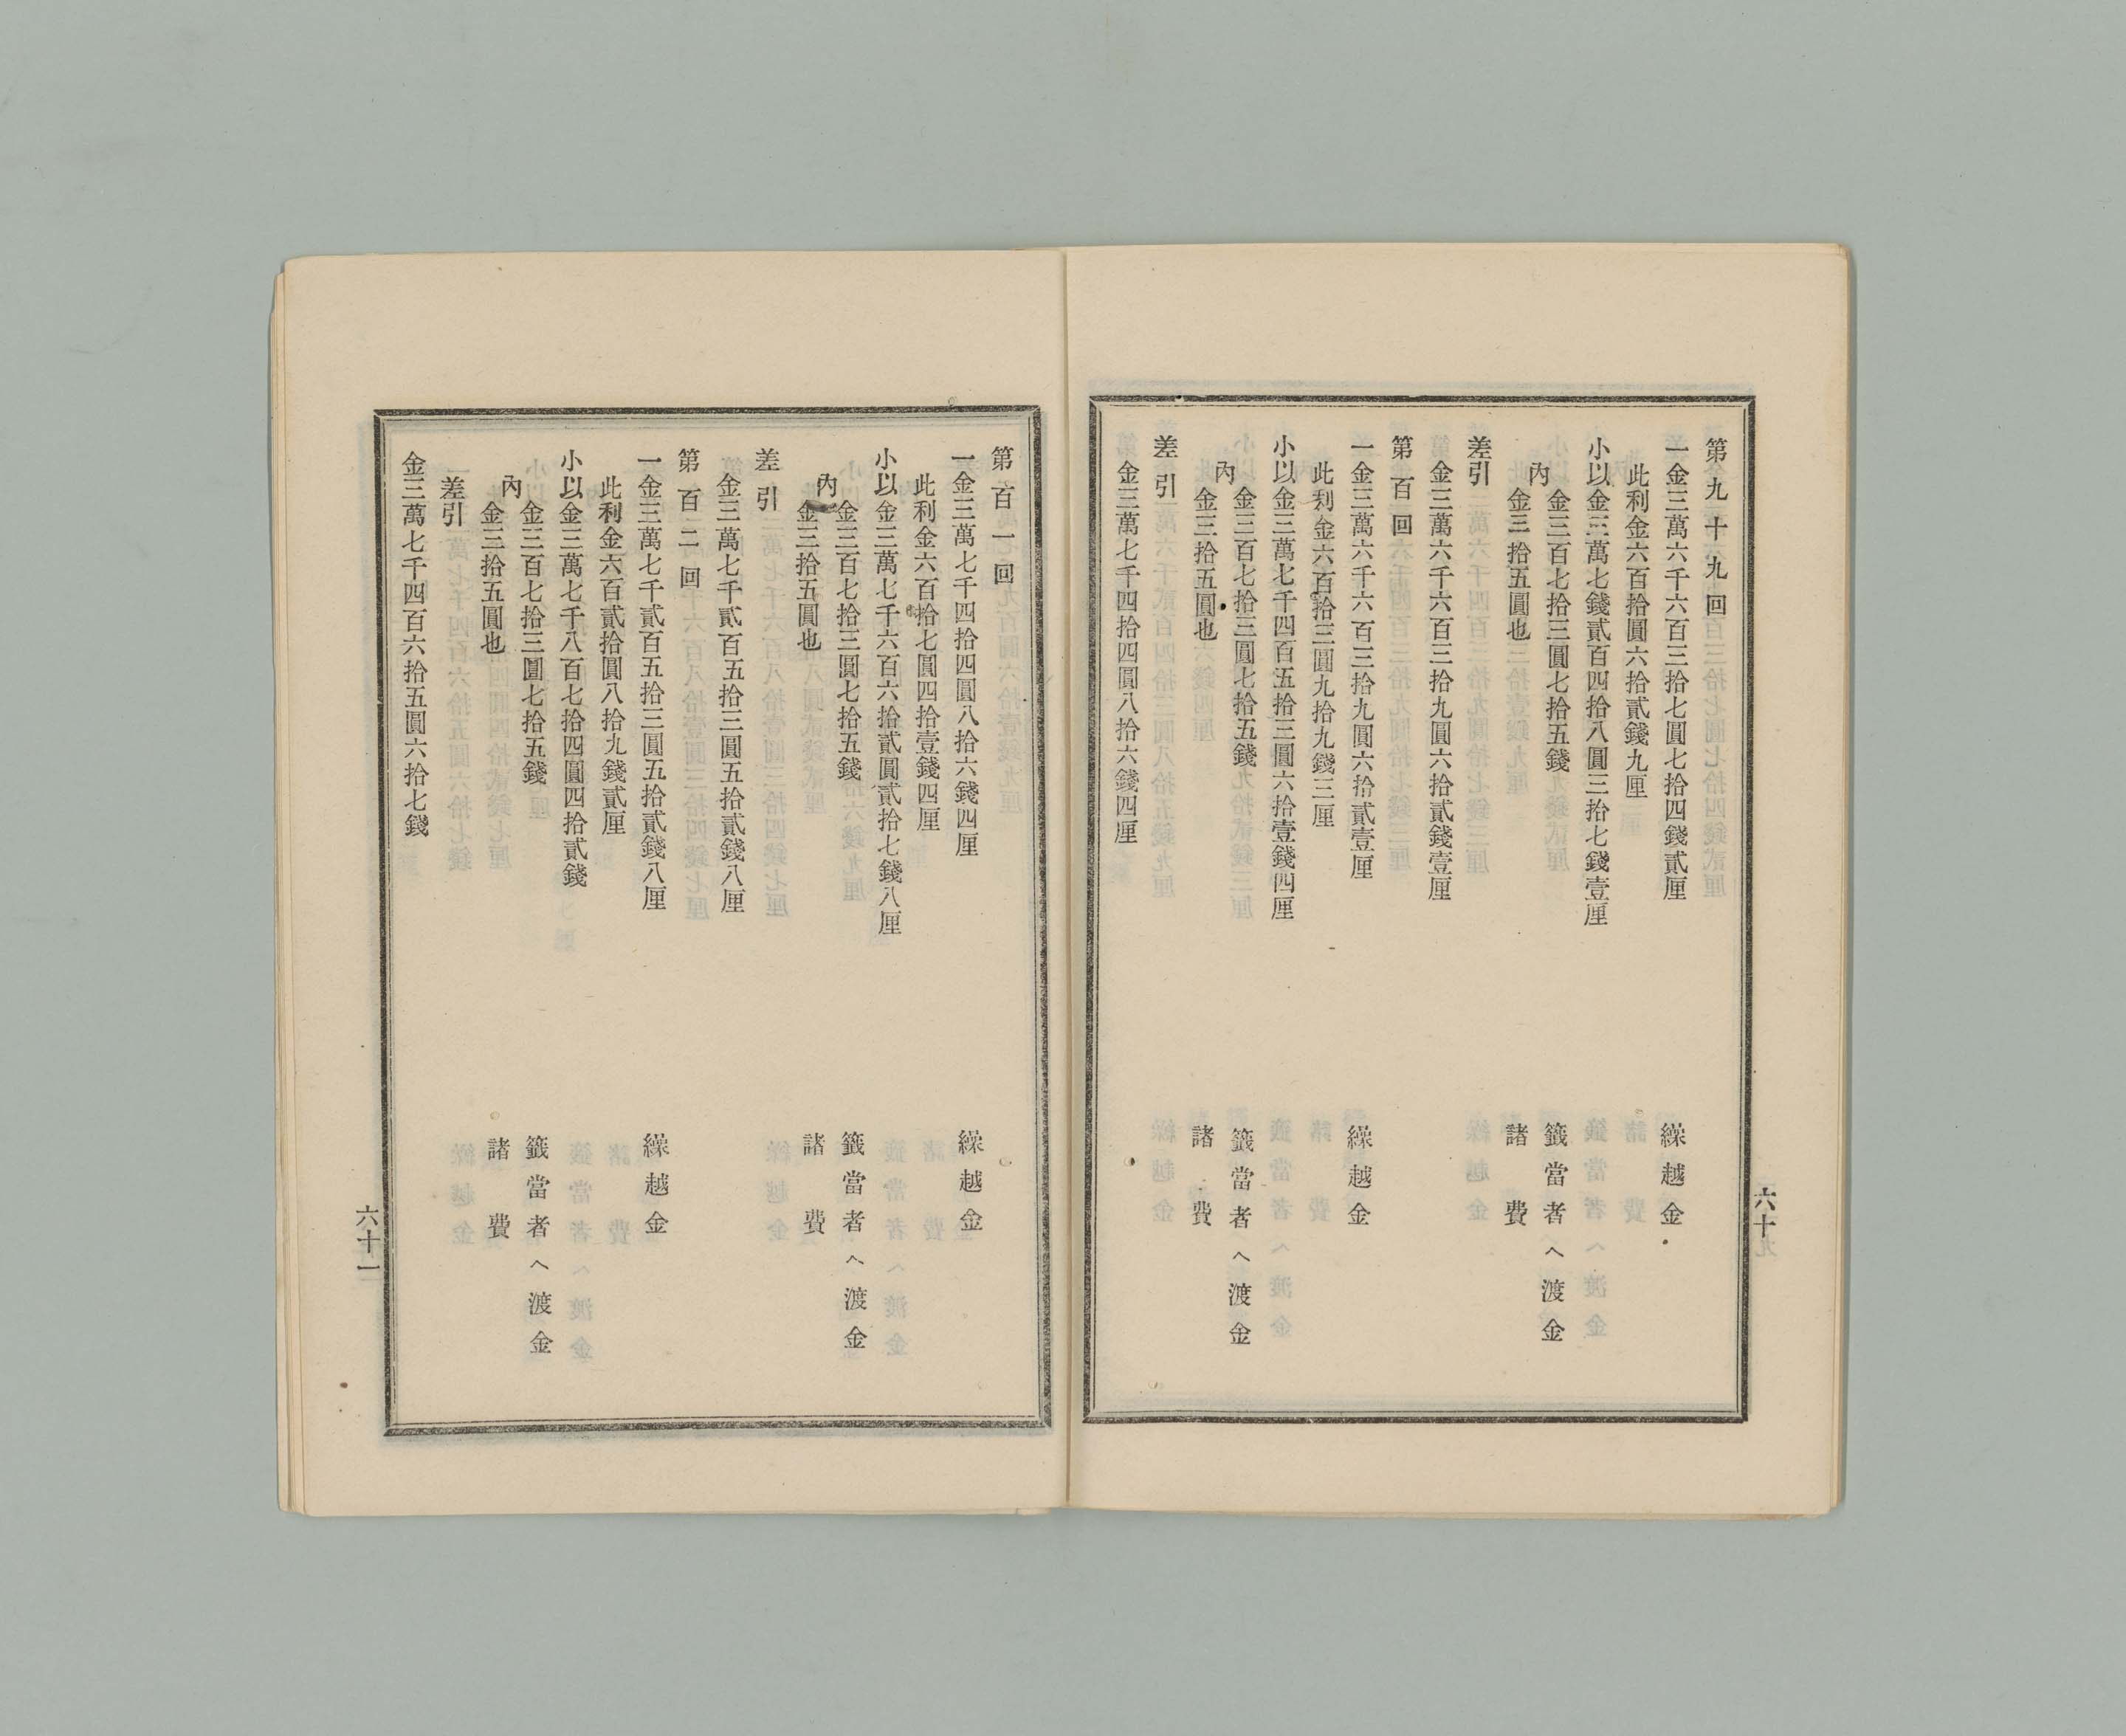 第九十九回
一金三萬六千六百三拾七圓七拾四錢貳厘 繰越金
此利金六百拾圓六拾貳錢九厘
小以金三萬七錢貳百四拾八圓三拾七錢壹厘
內
金三百七拾三圓七拾五錢 籤當者へ渡金
金三拾五圓也 諸費
差引
金三萬六千六百三拾九圓六拾貳錢壹厘
第百回
一金三萬六千六百三拾九圓六拾貳壹厘 繰越金
此利金六百拾三圓九拾九錢三厘
小以金三萬七千四百五拾三圓六拾壹錢四厘
內
金三百七拾三圓七拾五錢 籤當者へ渡金
金三拾五圓也 諸費
差引
金三萬七千四拾四圓八拾六錢四厘
六十
第百一回
一金三萬七千四拾四圓八拾六錢四厘 繰越金
此利金六百拾七圓四拾壹錢四厘
小以金三萬七千六百六拾貳圓貳拾七錢八厘
內
金三百七拾三圓七拾五錢 籤當者へ渡金
金三拾五圓也 諸費
差引
金三萬七千貳百五拾三圓五拾貳錢八厘
第百二回
一金三萬七千貳百五拾三圓五拾貳錢八厘 繰越金
此利金六百貳拾圓八拾九錢貳厘
小以金三萬七千八百七拾四圓四拾貳錢
內
金三百七拾三圓七拾五錢 籤當者へ渡金
金三拾五圓也 諸費
差引
金三萬七千四百六拾五圓六拾七錢
六十一